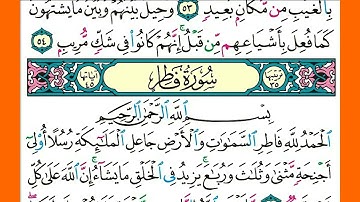 بِٱلْغَيْبِ مِن مَّكَانٍۭ بَعِيدٍ ٥٣ وَحِيلَ بَيْنَهُمْ وَبَيْنَ مَا يَشْتَهُونَ
كَمَا فُعِلَ بِأَشْيَاعِهِم مِّن قَبْلُ ۚ إِنَّهُمْ كَانُوا۟ فِى شَكٍّ مُّرِيبٍۭ ٥٤
ترتيبها ٣٥ سُورَةُ فَاطِرٍ آياتها ٤٥
بِسْمِ ٱللَّهِ ٱلرَّحْمَٰنِ ٱلرَّحِيمِ
ٱلْحَمْدُ لِلَّهِ فَاطِرِ ٱلسَّمَٰوَٰتِ وَٱلْأَرْضِ جَاعِلِ ٱلْمَلَٰٓئِكَةِ رُسُلًا أُو۟لِىٓ
أَجْنِحَةٍ مَّثْنَىٰ وَثُلَٰثَ وَرُبَٰعَ ۚ يَزِيدُ فِى ٱلْخَلْقِ مَا يَشَآءُ ۚ إِنَّ ٱللَّهَ عَلَىٰ كُلِّ